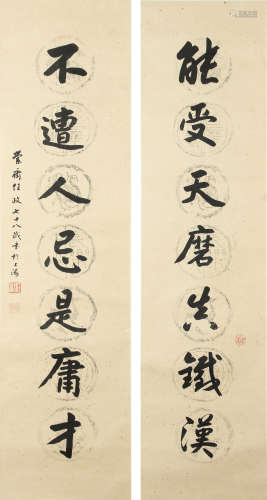 能受天磨真鐵漢
不遭人忌是庸才
任政七十八歲書於上海